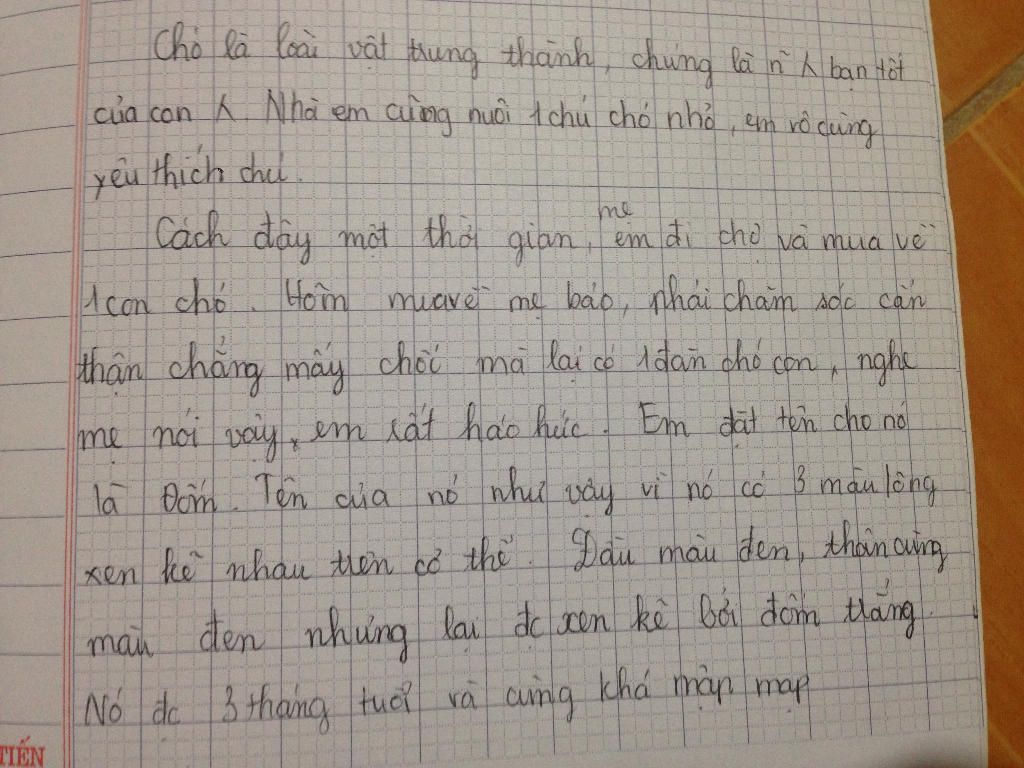 Chó là loài vật trung thành, chúng là ñ λ bạn tốt
của con λ. Nhà em cũng nuôi 1 chú chó nhỏ, em vô cùng
yêu thích chú.
mẹ
Cách đây một thời gian, em đi chợ và mua về
1 con chó. Hôm mua về mẹ bảo, phải chăm sóc cẩn
thận chẳng mấy chốc mà lại có 1 đàn chó con, nghe
mẹ nói vậy, em rất háo hức. Em đặt tên cho nó
là Đốm. Tên của nó như vậy vì nó có 3 màu lông
xen kẽ nhau trên cơ thể. Đầu màu đen, thân cũng
màu đen nhưng lại đc xen kẽ bởi đốm trắng.
Nó đc 3 tháng tuổi và cũng khá mập mạp
TIẾN